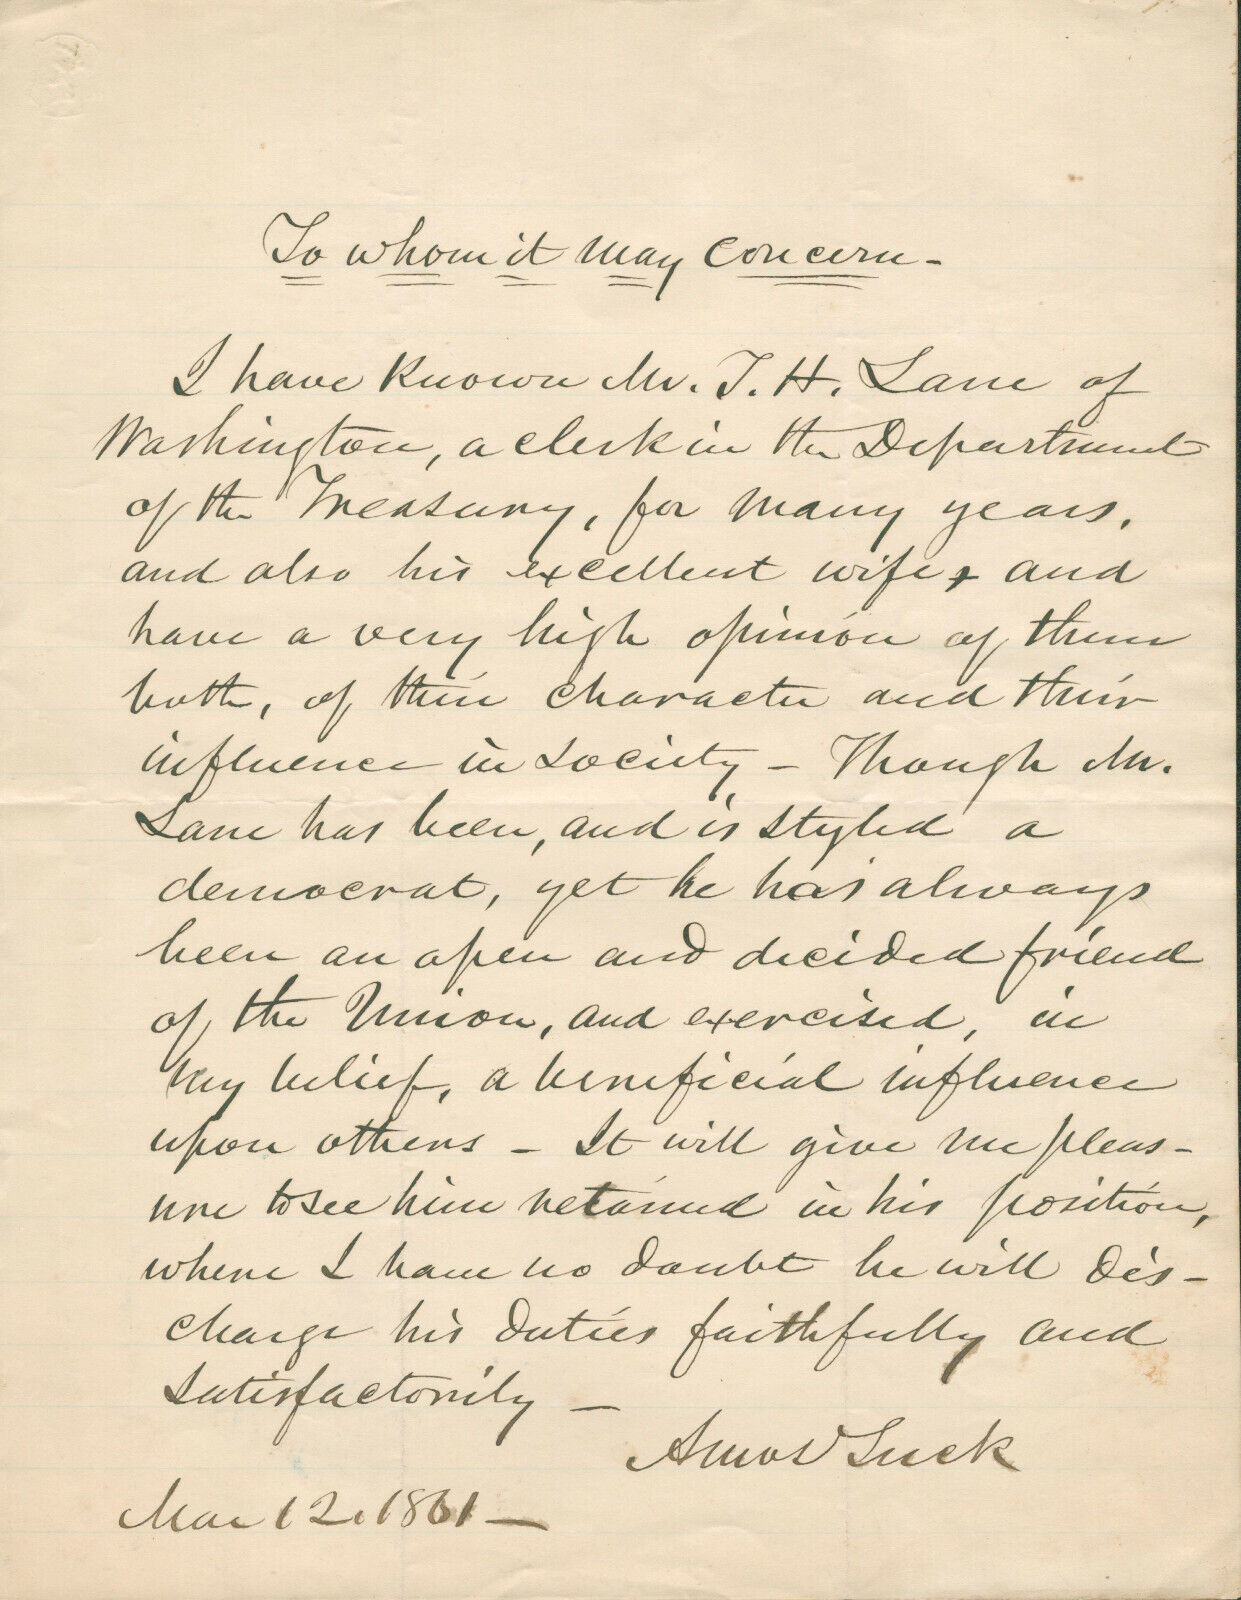 To whom it may concern -
I have known Mr. T. H. Lane of
Washington, a clerk in the Department
of the Treasury, for many years,
and also his excellent wife, and
have a very high opinion of them
both, of their character and their
influence in society - Though Mr.
Lane has been, and is styled a
democrat, yet he has always
been an open and decided friend
of the Union, and exercised, in
my belief, a beneficial influence
upon others - It will give me pleas-
ure to see him retained in his position,
where I have no doubt he will dis-
charge his duties faithfully and
satisfactorily -
Amos Tuck
Mar 12, 1861 -